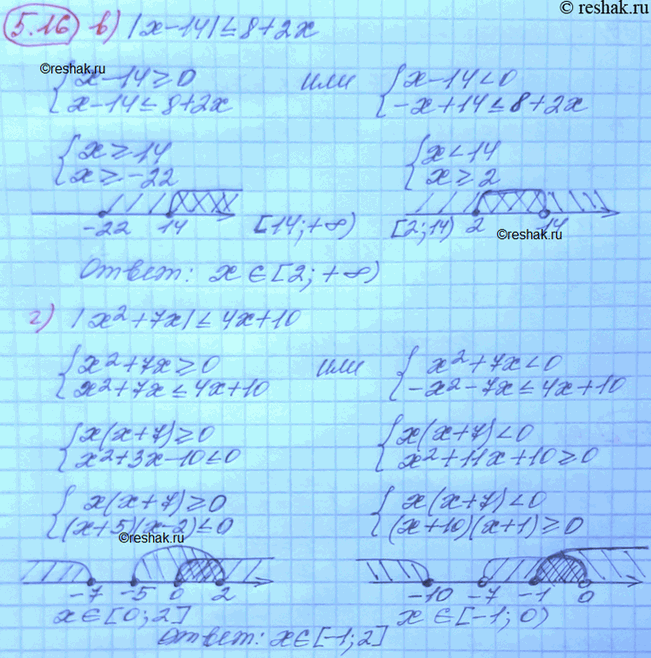 © reshak.ru
5.16 в) |x-14| ≤ 8+2x
©reshak.ru
{ x-14 ≥ 0 или { x-14 < 0
{ x-14 ≤ 8+2x { -x+14 ≤ 8+2x
{ x ≥ 14 { x < 14
{ x ≥ -22 { x ≥ 2
-22 14 [14; +∞) [2; 14) 2 14
©reshak.ru
Ответ: x ∈ [2; +∞)
г) |x²+7x| ≤ 4x+10
{ x²+7x ≥ 0 или { x²+7x < 0
{ x²+7x ≤ 4x+10 { -x²-7x ≤ 4x+10
{ x(x+7) ≥ 0 { x(x+7) < 0
{ x²+3x-10 ≤ 0 { x²+11x+10 ≥ 0
{ x(x+7) ≥ 0 { x(x+7) < 0
{ (x+5)(x-2) ≤ 0 { (x+10)(x+1) ≥ 0
©reshak.ru
-7 -5 0 2 -10 -7 -1 0
x ∈ [0; 2] x ∈ [-1; 0)
Ответ: x ∈ [-1; 2]